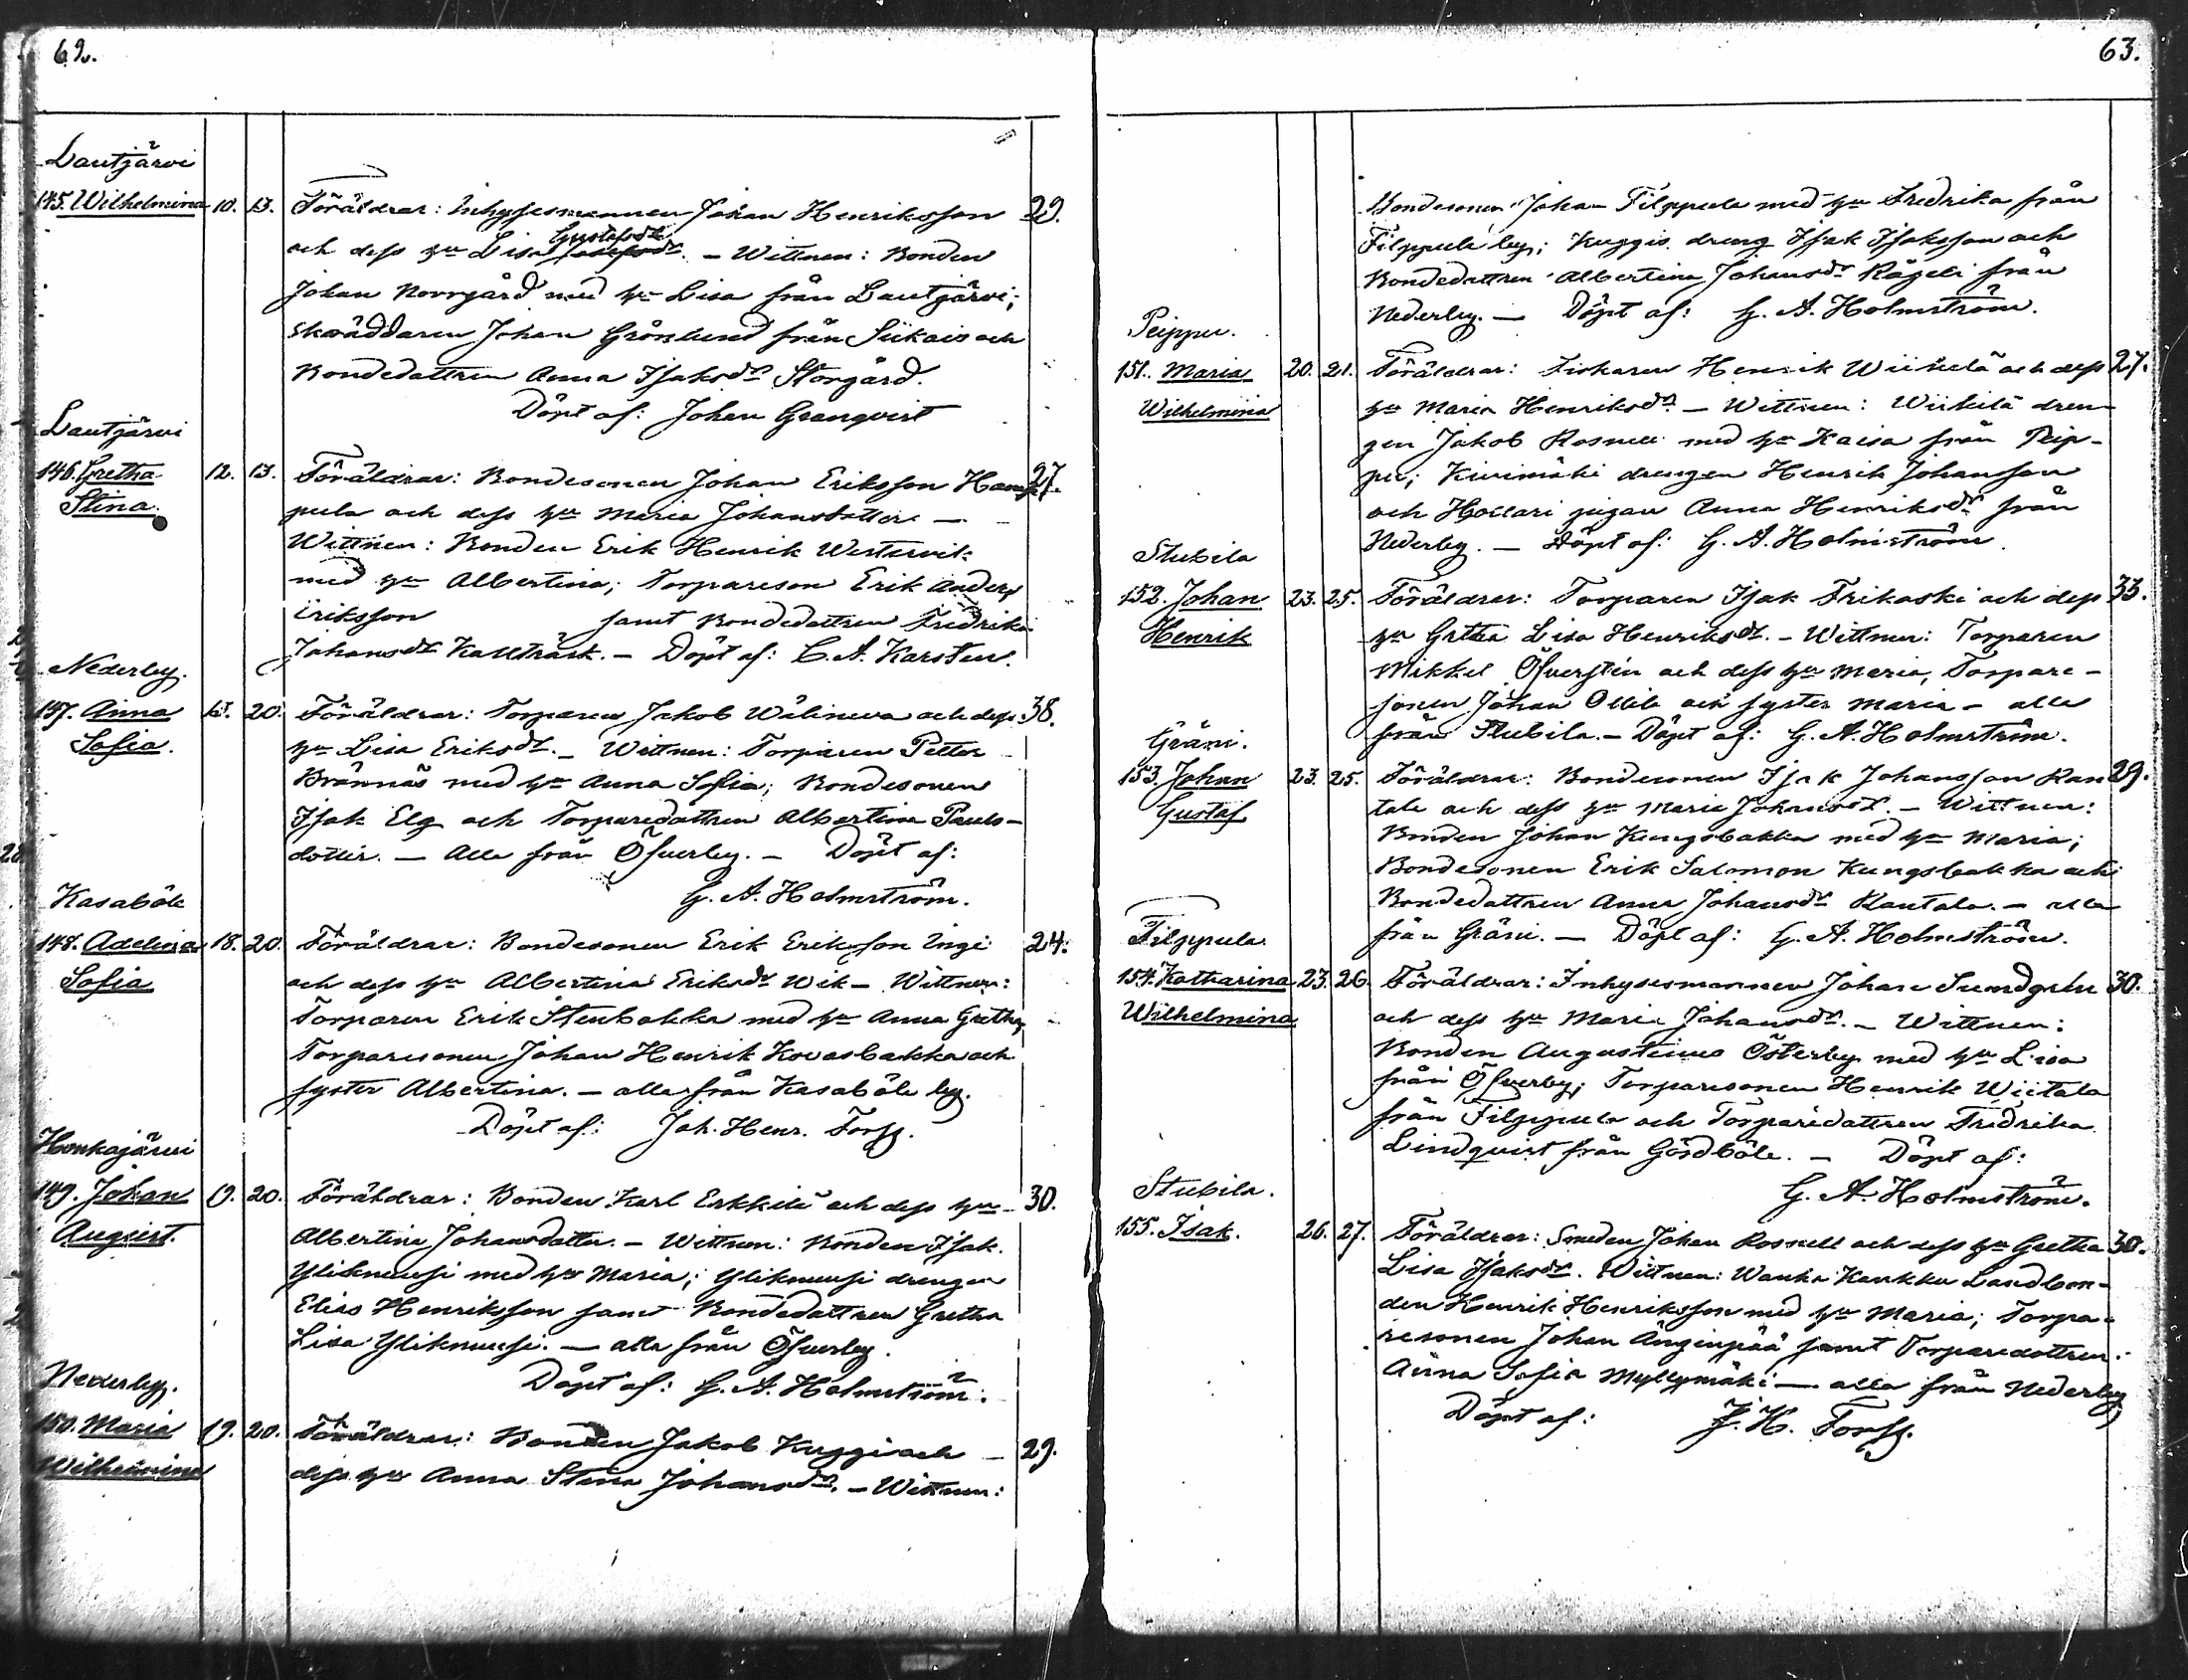 62.
Lautjärvi
145. Wilhelmina 10. 13. Föräldrar: Inhysesmannen Johan Henriksson 29.
och dess hu Lisa Gustafsdr. – Wittnen: Bonden
Johan Norrgård med hu Lisa från Lautjärvi;
Skräddaren Johan Grönlund från Siikais och
Bondedattren Anna Isaksdr Storgård.
Döpt af: Johan Granqvist
Lautjärvi
146. Gretha 12. 13. Föräldrar: Bondesonen Johan Eriksson Ham- 27.
Stina. pula och dess hu Maria Johansdatter. –
Wittnen: Bonden Erik Henrik Westervik
med hu Albertina; Torpareson Erik Anders
Eriksson samt Bondedattren Fredrika
Johansdr Kallträsk. – Döpt af: C. A. Karsten.
Nederby.
147. Anna 13. 20. Föräldrar: Torparen Jakob Wälineva och dess 38.
Sofia. hu Lisa Eriksdr. – Wittnen: Torparen Petter
Brännäs med hu Anna Sofia; Bondesonen
Isak Elg och Torparedattren Albertina Pauls-
dotter. – Alla från Öfverby. – Döpt af:
G. A. Holmström.
Kasaböle
148. Adelina 18. 20. Föräldrar: Bondesonen Erik Eriksson Ingi 24.
Sofia och dess hu Albertina Eriksdr Wik – Wittnen:
Torparen Erik Stenbakka med hu Anna Gretha,
Torparesonen Johan Henrik Kovasbakka och
syster Albertina. – alla från Kasaböle by.
Döpt af: Joh. Henr. Forss.
Honkajärvi
149. Johan 19. 20. Föräldrar: Bonden Karl Erkkilä och dess hu 30.
August. Albertina Johansdatter. – Wittnen: Bonden Isak
Yliknuusi med hu Maria; Yliknuusi drengen
Elias Henriksson samt Bondedattren Gretha
Lisa Yliknuusi. – alla från Öfverby.
Döpt af: G. A. Holmström.
Nederby.
150. Maria 19. 20. Föräldrar: Bonden Jakob Kuggi och – 29.
Wilhelmina dess hu Anna Stina Johansdr. – Wittnen:
63.
Bondesonen Johan Filppula med hu Fredrika från
Filppula by; Kuggis dreng Isak Isaksson och
Bondedattren Albertina Johansdr Rägeli från
Nederby. – Döpt af: G. A. Holmström.
Peippu.
151. Maria 20. 21. Föräldrar: Fiskaren Henrik Wiikilä och dess 27.
Wilhelmina hu Maria Henriksdr. – Wittnen: Wiikilä dren-
gen Jakob Rosnell med hu Kaisa från Peip-
pu; Kivimäki drengen Henrik Johansson
och Hollari pigan Anna Henriksdr från
Nederby. – Döpt af: G. A. Holmström.
Stubila
152. Johan 23. 25. Föräldrar: Torparen Isak Frikaski och dess 33.
Henrik hu Gretha Lisa Henriksdr. – Wittnen: Torparen
Mikkel Öfverstin och dess hu Maria, Torpare-
sonen Johan Ollila och syster Maria – alla
från Stubila. – Döpt af: G. A. Holmström.
Gräni.
153. Johan 23. 25. Föräldrar: Bondesonen Isak Johansson Ran 29.
Gustaf tala och dess hu Maria Johansdr. – Wittnen:
Bonden Johan Kungsbakka med hu Maria;
Bondesonen Erik Salomon Kungsbakka och
Bondedattren Anna Johansdr Rantala. – alla
från Gräni. – Döpt af: G. A. Holmström.
Filppula.
154. Katharina 23. 26. Föräldrar: Inhysesmannen Johan Sundgren 30.
Wilhelmina och dess hu Maria Johansdr. – Wittnen:
Bonden Augustinus Österby med hu Lisa
från Öfverby; Torparesonen Henrik Wiitala
från Filppula och Torparedattren Fredrika
Lindqvist från Gördböle. – Döpt af:
G. A. Holmström.
Stubila.
155. Isak. 26. 27. Föräldrar: Smeden Johan Rosnell och dess hu Gretha 38.
Lisa Isaksdr. Wittnen: Wanha Kaukku Landbon-
den Henrik Henriksson med hu Maria; Torpa-
resonen Johan Änginpää samt Torparedottren
Anna Sofia Myllymäki – alla från Nederby
Döpt af: J. H. Forss.